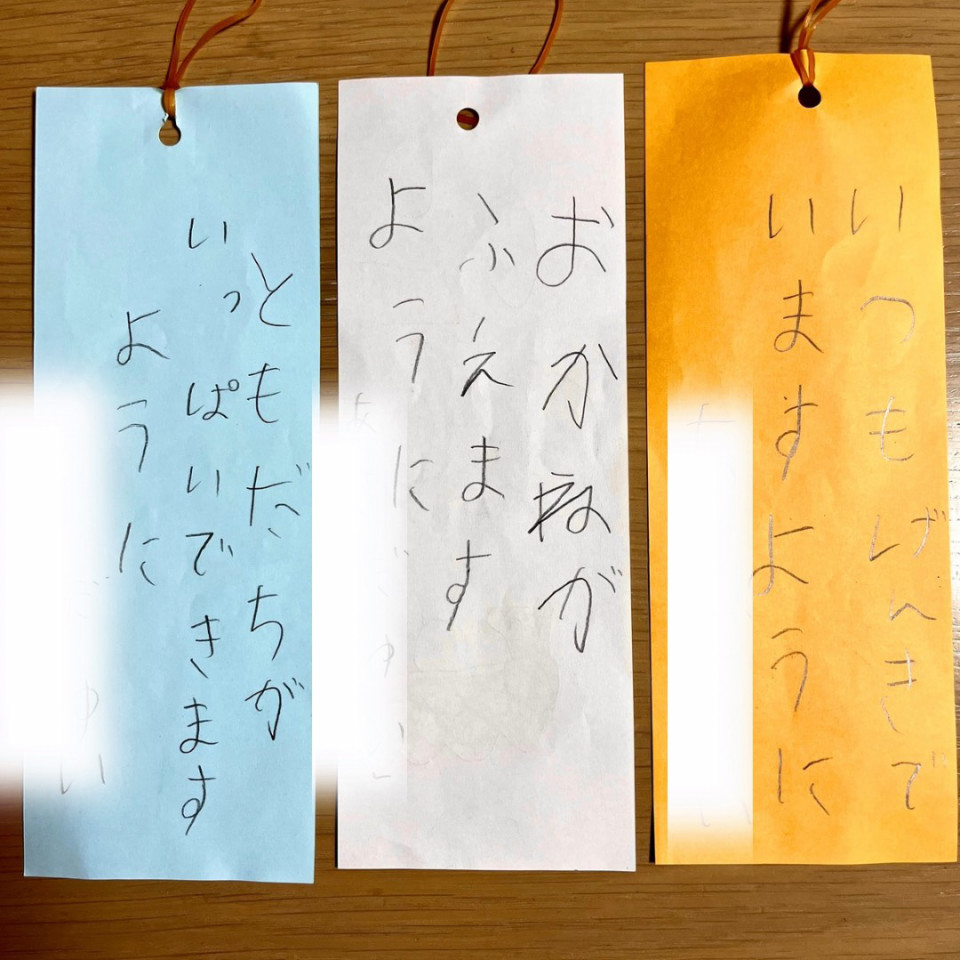 いつもげんきで
いますように
おかねが
ふえます
ように
ともだちが
いっぱいできます
ように